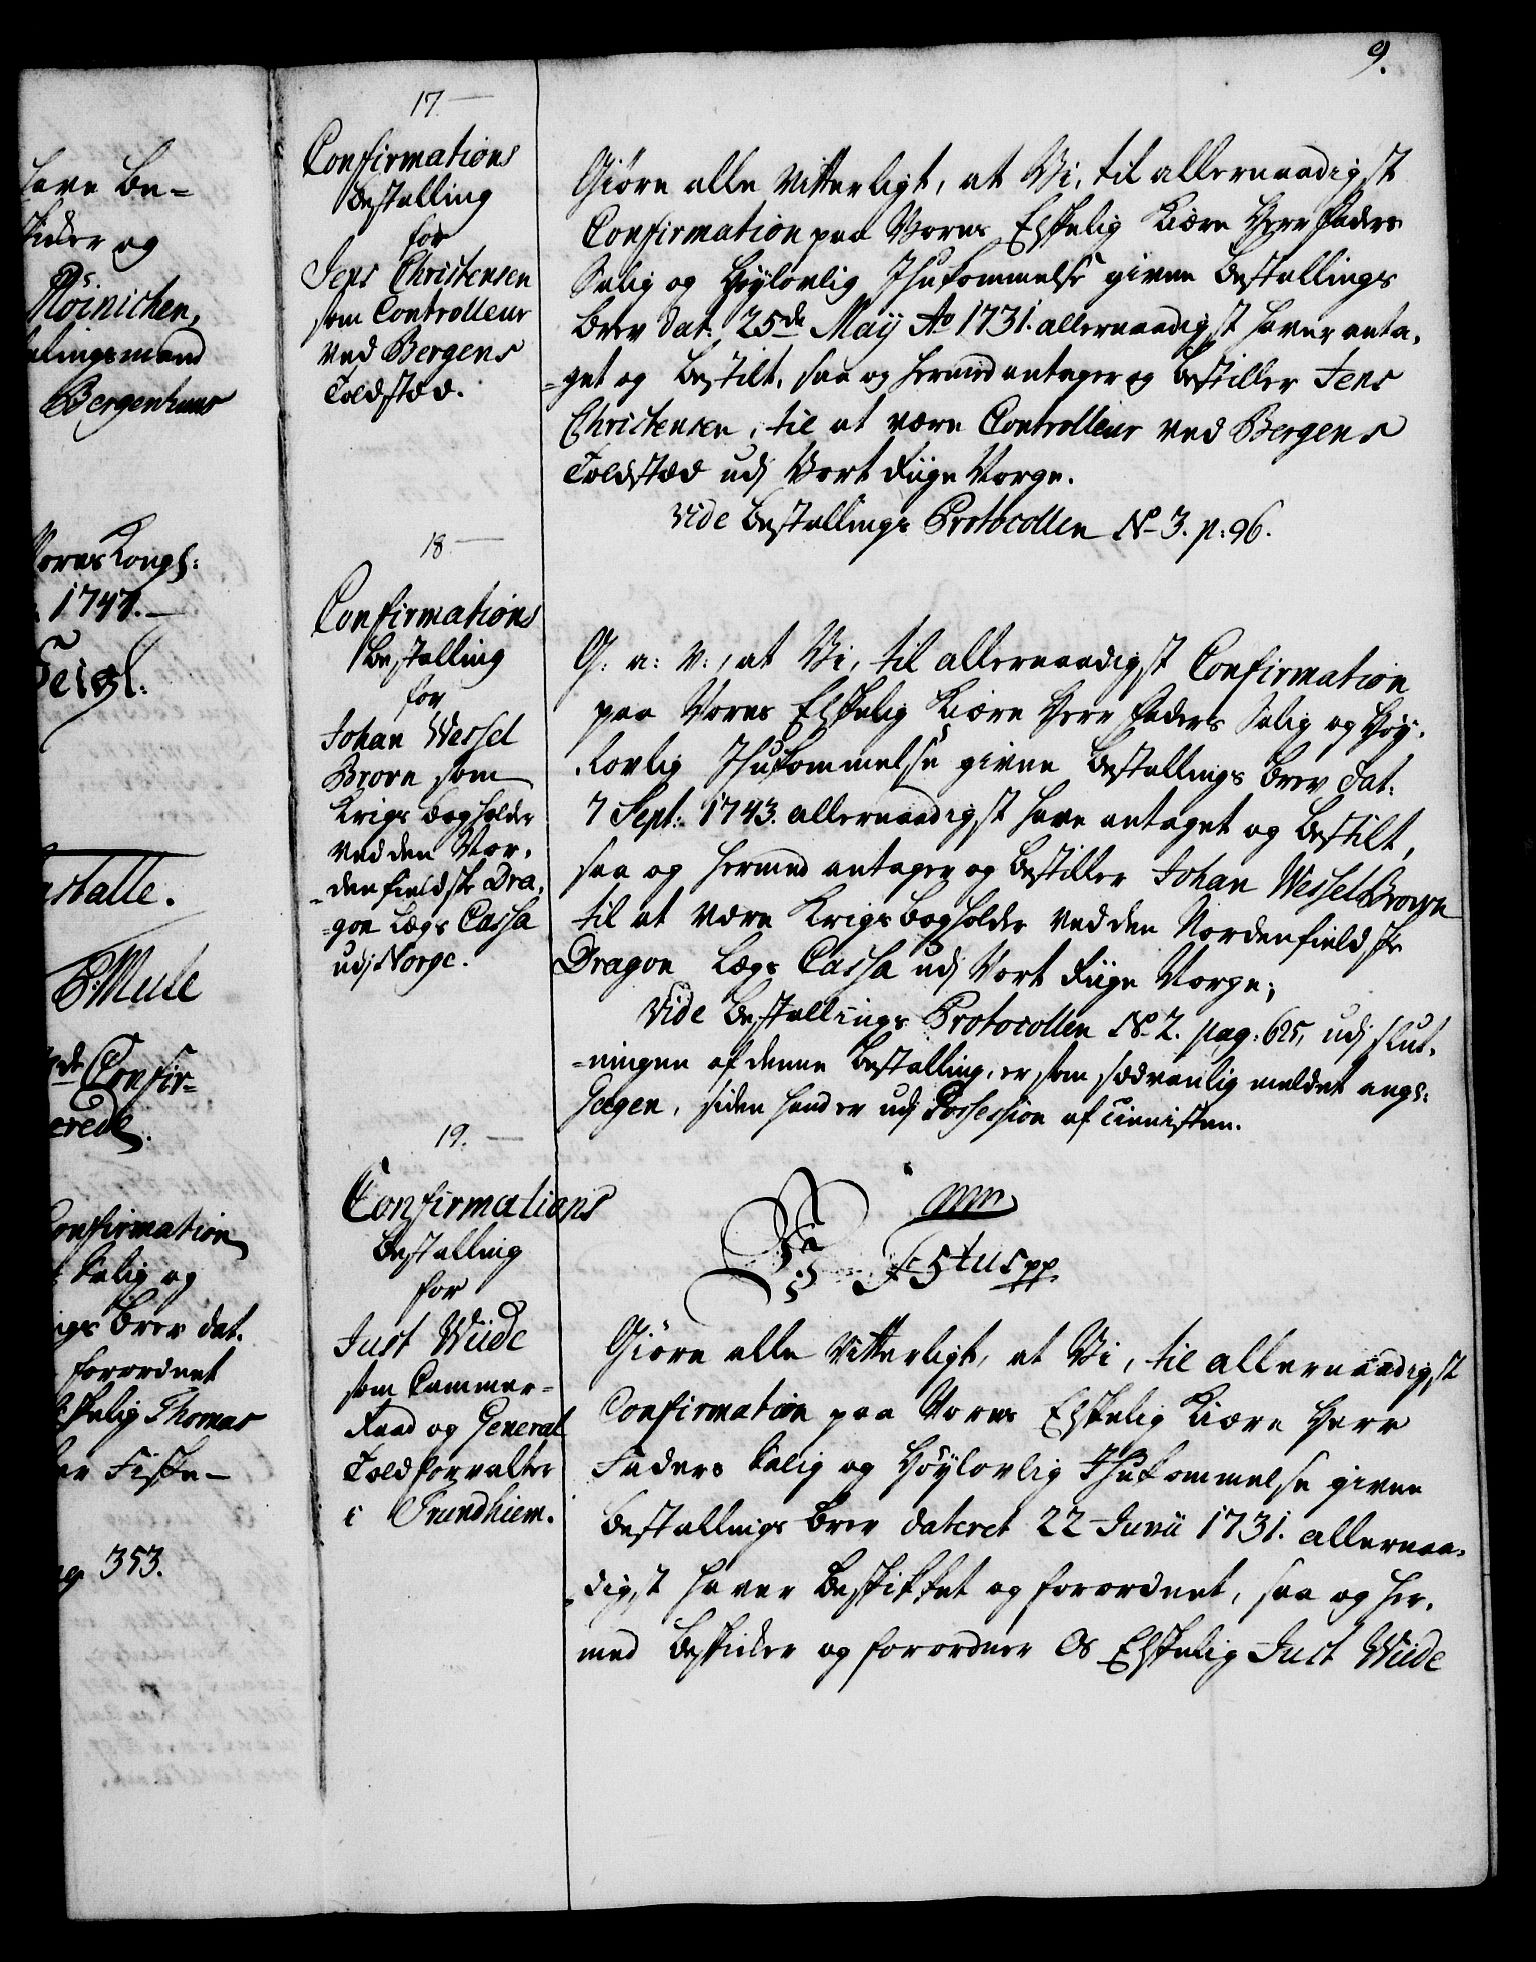 9.
have be-
skicker og
Möinichen,
Bergenhuus
Vores Kongl:
1747.
Seigl:
P: Mule
de Confir-
erede.
Confirmation
Salig og
ngs brev dat.
forordnet
Elskelig Thomas
ver Fiske-
ag 353.
17.
Confirmations
bestalling
for
Jens Christensen
som Controlleur
ved Bergens
Toldstæd.
Giöre alle vitterligt, at Vi, til allernaadigst
Confirmation paa Vores Elskelig Kiære Herr Faders
Salig og Höylovlig Ihukommelse givne bestallings
brev dat: 25de Maÿ Ao 1731. allernaadigst haver anta-
-get og bestilt, saa og hermed antager og bestiller Jens
Christensen, til at være Controlleur ved Bergens
Toldstæd udj Vort Riige Norge.
Vide bestallings Protocollen No 3. p: 96.
18.
Confirmations
bestalling
for
Johan Wessel
Brovn som
Krigs bogholder
ved den Nor-
-denfieldske Dra-
-gon Lægs Cassa
udj Norge.
G: a: v:, at Vi, til allernaadigst Confirmation
paa Vores Elskelig Kiære Herr Faders Salig og Höy-
-lovlig Ihukommelse givne bestallings brev dat:
7 Sept: 1743. allernaadigst have antaget og bestilt,
saa og hermed antager og bestiller Johan Wessel Brown
til at være Krigs bogholder ved den Nordenfieldske
Dragon Lægs Cassa udj Vort Riige Norge;
Vide bestallings Protocollen No 2. pag: 625, udj slut-
-ningen af denne bestalling, er som sædvanlig meldet angl:
Gagen, siden hand er udj Possession af tienisten.
19.
Confirmations
bestalling
for
Just Wiide
som Cammer-
Raad og General
Toldforvalter
i Trundhiem.
Giöre alle vitterligt, at Vi, til allernaadigst
Confirmation paa Vores Elskelig Kiære Herr
Faders Salig og Höylovlig Ihukommelse givne
bestallings brev dateret 22 Junii 1731. allernaa-
-digst haver beskikket og forordnet, saa og her-
med beskicker og forordner Os Elskelig Just Wiide